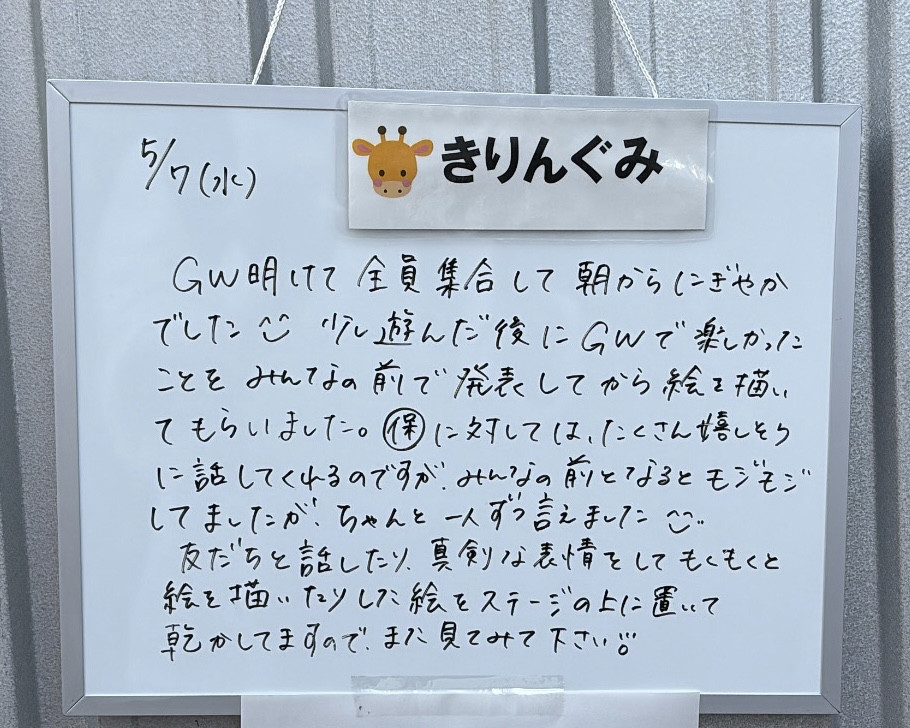 きりんぐみ
5/7(水)
GW明けて全員集合して朝からにぎやか
でした 少し遊んだ後にGWで楽しかった
ことをみんなの前で発表してから絵を描い
てもらいました。㊝に対しては、たくさん嬉しそう
に話してくれるのですが、みんなの前となるとモジモジ
してましたが、ちゃんと一人ずつ言えました
友だちと話したり、真剣な表情をしてもくもくと
絵を描いたりした絵をステージの上に置いて
乾かしてますので、また見てみて下さい!!